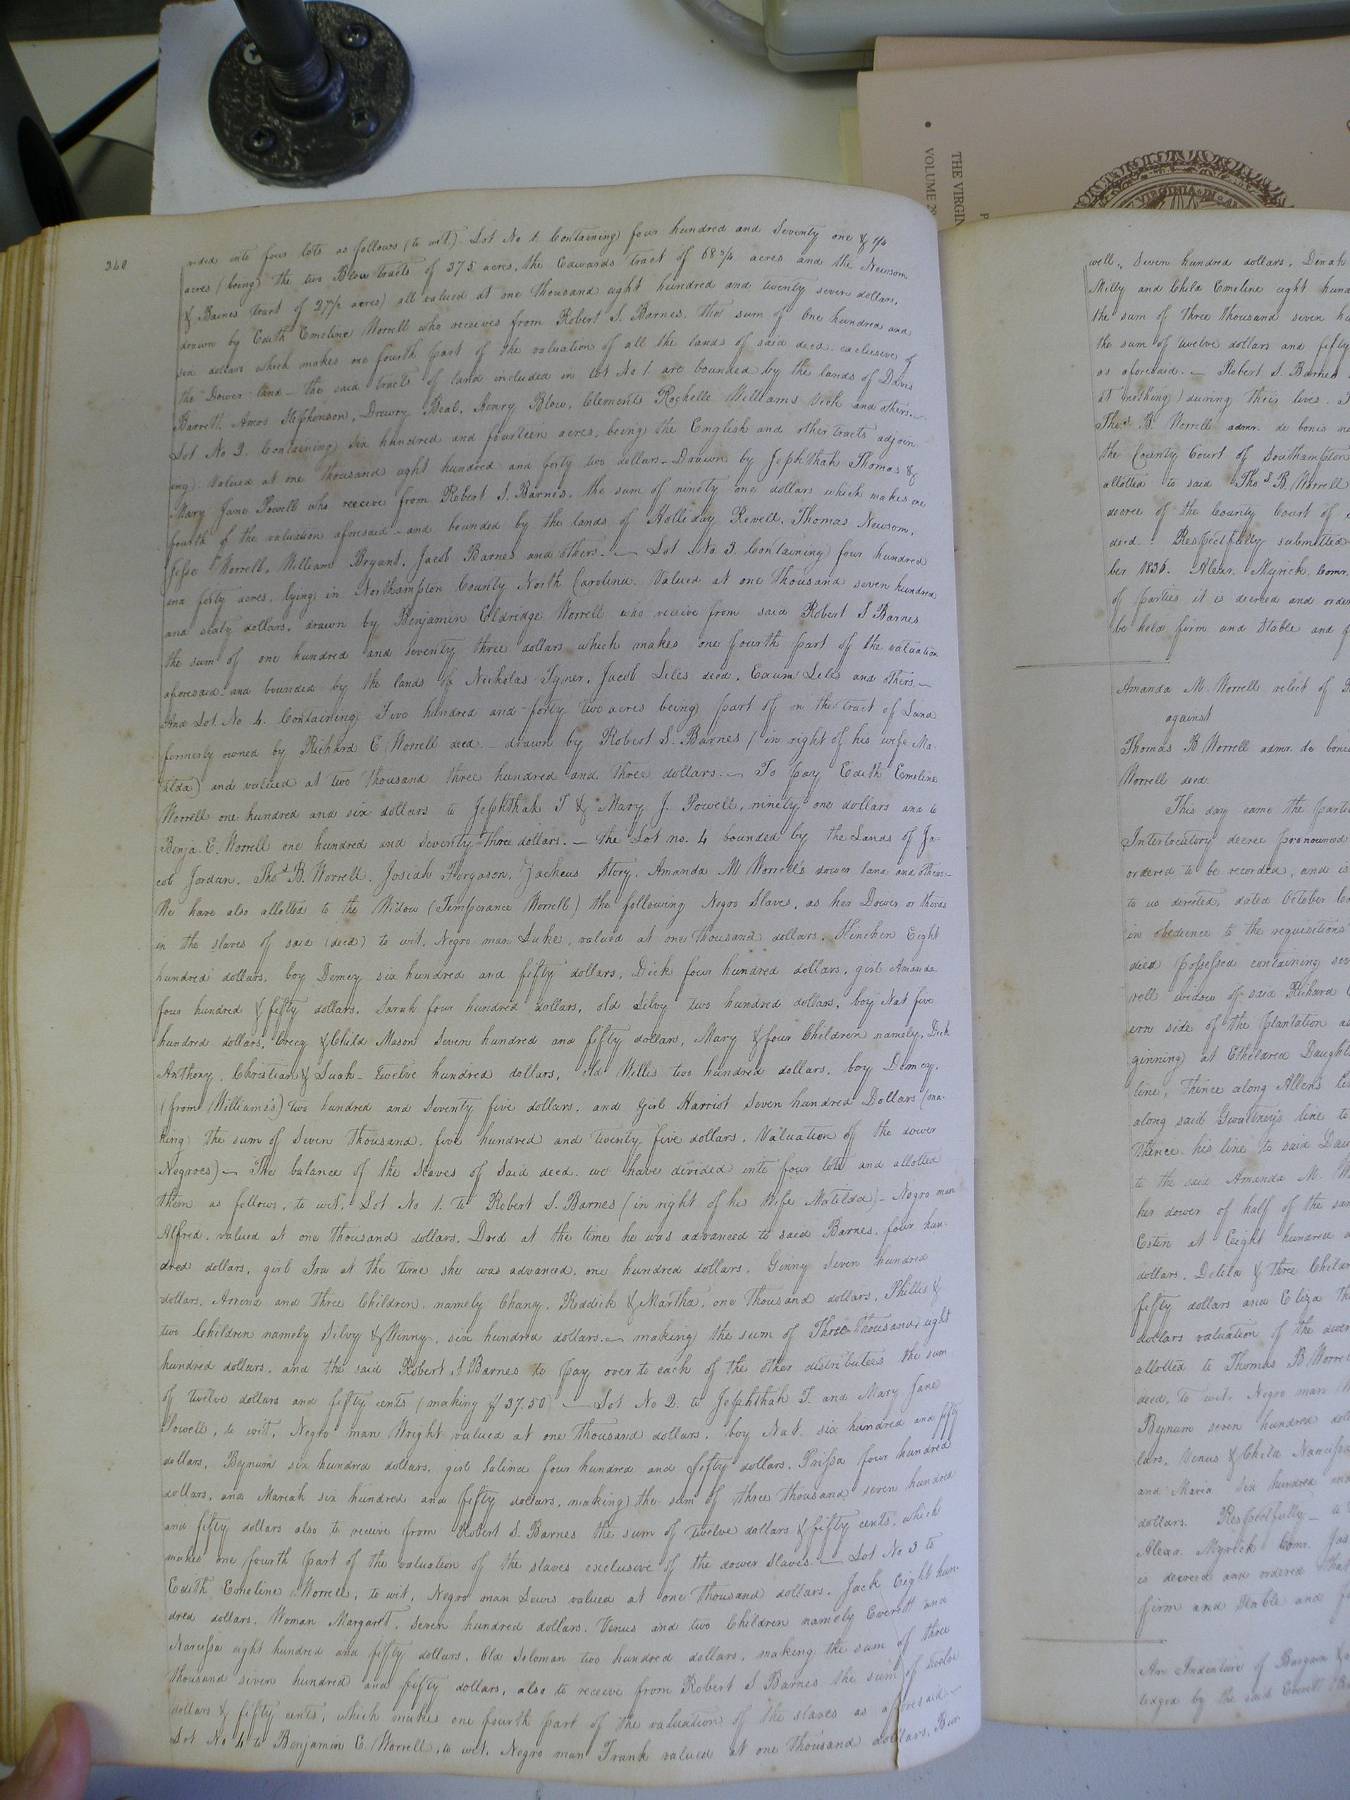 THE VIRGIN
VOLUME 2
VIRGINIA
260
vided into four lots as follows (to wit) Lot No 1. Containing four hundred and Seventy one & 1/4
acres (being the two Blow tracts of 375 acres, the Edwards tract of 68 3/4 acres and the Newsom
& Baines tract of 27 1/2 acres) all valued at one thousand eight hundred and twenty seven dollars,
drawn by Edith Emeline Worrell who receives from Robert S. Barnes, the sum of One hundred and
six dollars which makes one fourth part of the valuation of all the lands of said decd. exclusive of
the Dower land - the said tracts of land included in Lot No 1 are bounded by the lands of Davis
Barrett, Amos Stephenson, Drewry Beal, Henry Blow, Clements Rochelle Williams and others.
Lot No 2. Containing Six hundred and fourteen acres, being the English and other tracts adjoin-
ing. Valued at one thousand eight hundred and forty two dollars - Drawn by Jephthah Thomas &
Mary Jane Powell who receive from Robert S. Barnes, the sum of ninety one dollars which makes one
fourth of the valuation aforesaid - and bounded by the lands of Holliday Revell, Thomas Newsom,
Jesse Worrell, William Bryant, Jacob Barnes and others. — Lot No 3. Containing four hundred
and forty acres, lying in Northampton County, North Carolina. Valued at one thousand seven hundred
and sixty dollars, drawn by Benjamin Eldredge Worrell who receive from said Robert S Barnes
the sum of one hundred and seventy three dollars which makes one fourth part of the valuation
aforesaid and bounded by the lands of Nicholas Tyner, Jacob Liles decd, Exum Liles and others. —
And Lot No 4. Containing Five hundred and forty two acres being part of the tract of Land
formerly owned by Richard E Worrell decd - drawn by Robert S. Barnes (in right of his wife Ma-
tilda) and valued at two thousand three hundred and three dollars. — To pay Edith Emeline
Worrell one hundred and six dollars to Jephthah T & Mary J. Powell, ninety one dollars and to
Benja. E. Worrell one hundred and Seventy three dollars. — the Lot no. 4 bounded by the Lands of Ja-
cob Jordan, Thos B. Worrell, Josiah Forgason, Zacheus Story, Amanda M Worrell's dower land and others —
We have also allotted to the Widow (Temperance Worrell) the following Negro Slaves, as her Dower or thirds
in the slaves of said (decd) to wit, Negro man Luke, valued at one thousand dollars, Hinchen Eight
hundred dollars, boy Demcy six hundred and fifty dollars, Dick four hundred dollars, girl Amanda
four hundred & fifty dollars, Sarah four hundred dollars, old Silvy two hundred dollars, boy Nat five
hundred dollars, Creecy & Child Mason Seven hundred and fifty dollars, Mary & four Children namely, Dick
Anthony, Christian & Leah - twelve hundred dollars, Old Willis two hundred dollars, boy Demcy,
(from Williams's) two hundred and Seventy five dollars, and Girl Harriot Seven hundred Dollars (ma-
king) the sum of Seven thousand, five hundred and twenty five dollars, Valuation of the dower
Negroes) — The balance of the Slaves of Said decd. we have divided into four lots and allotted
them as follows, to wit. Lot No 1. to Robert S. Barnes (in right of his Wife Matilda) - Negro man
Alfred, valued at one thousand dollars, Dred at the time he was advanced to said Barnes, four hun-
dred dollars, girl at the time she was advanced, one hundred dollars, Ginny Seven hundred
dollars, and three Children, namely Chany, Reddick & Martha, one thousand dollars, Phillis &
two Children namely Silvy & Winny, six hundred dollars. — making the sum of Three thousand eight
hundred dollars, and the said Robert S Barnes to pay over to each of the other distributees the sum
of twelve dollars and fifty cents (making $37.50) — Lot No 2. to Jephthah T. and Mary Jane
Powell, to wit, Negro man Wright valued at one thousand dollars, boy Nat. six hundred and fifty
dollars, Bynum six hundred dollars, girl Salina four hundred and fifty dollars, Prissa four hundred
dollars, and Mariah six hundred and fifty dollars, making the sum of three thousand seven hundred
and fifty dollars also to receive from Robert S. Barnes the sum of twelve dollars & fifty cents, which
makes one fourth part of the valuation of the slaves exclusive of the dower slaves. — Lot No 3 to
Edith Emeline Worrell, to wit, Negro man Lewis valued at one thousand dollars, Jack Eight hun-
dred dollars, Woman Margarett, seven hundred dollars, Venus and two Children namely Everett and
Narcissa eight hundred and fifty dollars, Old Soloman two hundred dollars, making the sum of three
thousand seven hundred and fifty dollars, also to receive from Robert S Barnes the sum of twelve
dollars & fifty cents, which makes one fourth part of the valuation of the slaves as aforesaid —
Lot No 4 to Benjamin E. Worrell, to wit, Negro man Frank valued at one thousand dollars,
well, Seven hundred dollars, Dinah
Milly and Child Emeline eight hund
the sum of three thousand seven h
the sum of twelve dollars and fifty
as aforesaid. — Robert S. Barnes
at nothing) during their lives.
Thos B. Worrell admr. de bonis no
the County Court of Southampton
allotted to said Thos B. Worrell
decree of the County Court of
decd. Respectfully submitted
ber 1836. Alexr. Myrick, Comr.
of parties it is decreed and order
be held firm and Stable and f
Amanda M. Worrell relict of R
against
Thomas B Worrell admr. de bonis
Worrell decd.
This day came the Parties
Interlocutory decree pronounced
ordered to be recorded, and is
to us directed, dated October
in obedience to the requisitions
died possessed containing sev
rell widow of said Richard
ern side of the plantation as
ginning at Etheldred Daught
line, thence along Allen's li
along said Gwaltney's line to
thence his line to said Dau
to the said Amanda M. W
her dower of half of the sa
Ester at Eight hundred
dollars, Delila & three Childr
fifty dollars and Eliza th
dollars valuation of the dower
allotted to Thomas B Worre
decd, to wit. Negro man
Bynum seven hundred dol
lars, Venus & Child Narcissa
and Maria Six hundred and
dollars. Respectfully
Alexa. Myrick Comr. Jas
is decreed and ordered that
firm and Stable and f
An Indenture of Bargain &
ledged by the said Everet